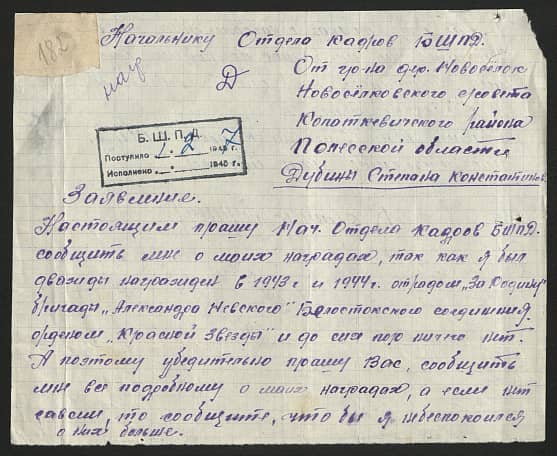 182
Начальнику Отдела кадров БШПД.
наг
Д
От гр-на дер. Новосёлок
Новосёлковского с/совета
Копаткевичского района
Полесской области
Дубины Степана Константинов
Б. Ш. П. Д.
Поступило 1. 2 194 7 г.
Исполнено . 1946 г.
Заявление.
Настоящим прашу Нач. Отдела Кадров БШПД.
сообщить мне о моих наградах, так как я был
дважды награжден в 1943 г и 1944 г. отрядом „За Родину"
бригады „Александра Невского" Белостокского соединения
орденом „Красной Звезды" и до сих пор ничего нет.
А поэтому убедительно прашу Вас, сообщить
мне все подробному о моих наградах, а если нет
савсем, то сообщите, что бы я небеспокоился
о них больше.